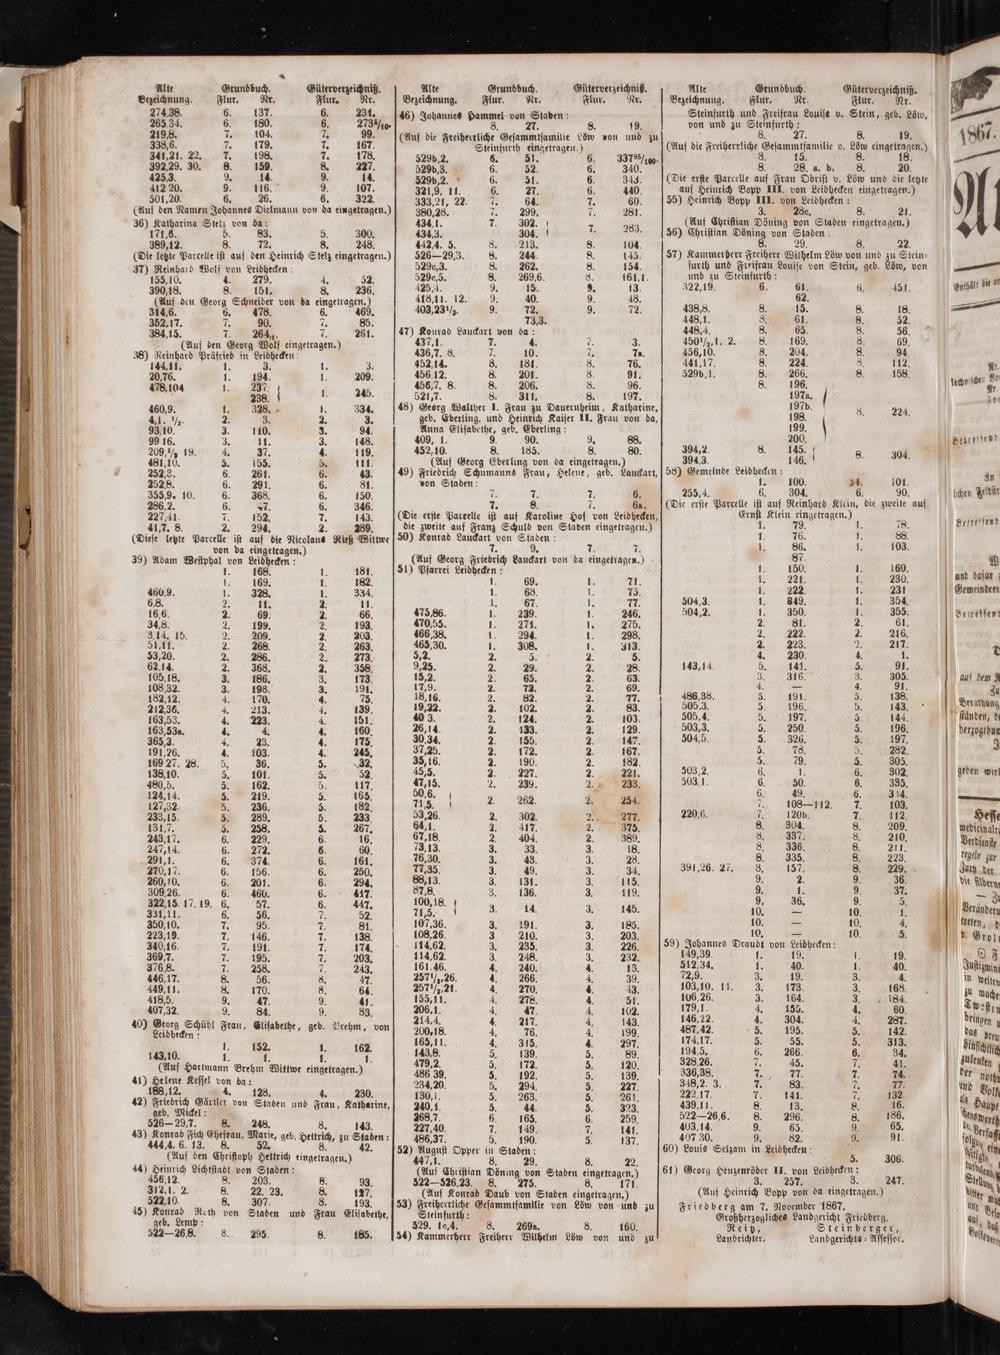 Alte Grundbuch. Güterverzeichniß.
Bezeichnung. Flur. Nr. Flur. Nr.
274,38. 6. 137. 6. 231.
265,34. 6. 180. 6. 273⁵/₁₀.
219,8. 7. 104. 7. 99.
338,6. 7. 179. 7. 167.
341,21. 22. 7. 198. 7. 178.
392,29. 30. 8. 159. 8. 227.
425,3. 9. 14. 9. 14.
412 20. 9. 116. 9. 107.
501,20. 6. 26. 6. 322.
(Auf den Namen Johannes Dielmann von da eingetragen.)
36) Katharina Stelz von da:
171,6. 5. 83. 5. 300.
389,12. 8. 72. 8. 248.
(Die letzte Parcelle ist auf den Heinrich Stelz eingetragen.)
37) Reinhard Wolf von Leidhecken:
155,10. 4. 279. 4. 52.
390,18. 8. 151. 8. 236.
(Auf den Georg Schneider von da eingetragen.)
314,6. 6. 478. 6. 469.
352,17. 7. 90. 7. 85.
384,15. 7. 264,1. 7. 261.
(Auf den Georg Wolf eingetragen.)
38) Reinhard Präfried in Leidhecken:
144,11. 1. 3. 1. 3.
20,76. 1. 194. 1. 209.
478,104 1. 237. 238. 1. 245.
460,9. 1. 328. 1. 334.
4,1. ½. 2. 3. 2. 3.
93,10. 3. 110. 3. 94.
99 16. 3. 11. 3. 148.
209,⅓ 19. 4. 37. 4. 119.
481,10. 5. 155. 5. 111.
252,8. 6. 261. 6. 43.
252,8. 6. 291. 6. 81.
355,9. 10. 6. 368. 6. 150.
286,2. 6. 47. 6. 346.
227,41. 7. 152. 7. 143.
41,7. 8. 2. 294. 2. 289.
(Diese letzte Parcelle ist auf die Nicolaus Rieß Wittwe
von da eingetragen.)
39) Adam Westphal von Leidhecken:
1. 168. 1. 181.
1. 169. 1. 182.
460,9. 1. 328. 1. 334.
6,8. 2. 11. 2. 11.
16,6. 2. 69. 2. 66.
34,8. 2. 199. 2. 193.
3,14. 15. 2. 209. 2. 203.
51,11. 2. 268. 2. 263.
53,20. 2. 286. 2. 273.
62,14. 2. 368. 2. 358.
105,18. 3. 186. 3. 173.
108,32. 3. 198. 3. 191.
182,12. 4. 170. 4. 75.
212,36. 4. 213. 4. 139.
163,53. 4. 223. 4. 151.
163,53a. 4. 4. 4. 160.
365,3. 4. 23. 4. 175.
191,26. 4. 103. 4. 245.
169 27. 28. 5. 36. 5. 32.
138,10. 5. 101. 5. 52.
480,5. 5. 162. 5. 117.
124,14. 5. 219. 5. 165.
127,32. 5. 236. 5. 182.
233,15. 5. 289. 5. 233.
131,7. 5. 258. 5. 267.
243,17. 6. 229. 6. 16.
247,14. 6. 272. 6. 60.
291,1. 6. 374. 6. 161.
270,17. 6. 156. 6. 250.
260,10. 6. 201. 6. 294.
309,26. 6. 460. 6. 417.
322,15. 17. 19. 6. 57. 6. 447.
331,11. 6. 56. 7. 52.
350,10. 7. 95. 7. 81.
223,19. 7. 146. 7. 138.
340,16. 7. 191. 7. 174.
369,7. 7. 195. 7. 203.
376,8. 7. 258. 7. 243.
446,17. 8. 56. 8. 47.
449,11. 8. 170. 8. 64.
418,5. 9. 47. 9. 41.
407,32. 9. 84. 9. 83.
40) Georg Schühl Frau, Elisabethe, geb. Brehm, von
Leidhecken:
1. 152. 1. 162.
143,10. 1. 1. 1. 1.
(Auf Hartmann Brehm Wittwe eingetragen.)
41) Helene Kessel von da:
188,12. 4. 128. 4. 230.
42) Friedrich Gärtler von Staden und Frau, Katharine,
geb. Mickel:
526—29,7. 8. 248. 8. 143.
43) Konrad Fich Ehefrau, Marie, geb. Hettrich, zu Staden:
444,4. 6. 13. 8. 52. 8. 42.
(Auf den Christoph Hettrich eingetragen.)
44) Heinrich Lichtstadt von Staden:
456,12. 8. 203. 8. 93.
312,1. 2. 8. 22. 23. 8. 127.
522,10. 8. 307. 8. 193.
45) Konrad Reth von Staden und Frau Elisabethe,
geb. Lemp:
522—26,8. 8. 295. 8. 185.
Alte Grundbuch. Güterverzeichniß.
Bezeichnung. Flur. Nr. Flur. Nr.
46) Johannes Hammel von Staden:
8. 27. 8. 19.
(Auf die Freiherrliche Gesammtfamilie Löw von und zu
Steinfurth eingetragen.)
529b,2. 6. 51. 6. 337⁸⁵/₁₀₀.
529b,3. 6. 52. 6. 340.
529b,2. 6. 51. 6. 343.
321,9. 11. 6. 27. 6. 440.
333,21, 22. 7. 64. 7. 60.
380,28. 7. 299. 7. 281.
434,1. 7. 302.
434,3. 304. 7. 283.
442,4. 5. 8. 213. 8. 104.
526—29,3. 8. 244. 8. 145.
529c,3. 8. 262. 8. 154.
529c,5. 8. 269,6. 8. 161,1.
425,4. 9. 15. 9. 13.
418,11. 12. 9. 40. 9. 48.
403,23⅓. 9. 72. 9. 72.
73,3.
47) Konrad Lauckart von da:
437,1. 7. 4. 7. 3.
436,7. 8. 7. 10. 7. 7a.
452,14. 8. 181. 8. 76.
456 12. 8. 201. 8. 91.
456,7. 8. 8. 206. 8. 96.
521,7. 8. 311. 8. 197.
48) Georg Walther I. Frau zu Dauernheim, Katharine,
geb. Eberling, und Heinrich Kaiser II. Frau von da,
Anna Elisabethe, geb. Eberling:
409, 1. 9. 90. 9. 88.
452,10. 8. 185. 8. 80.
(Auf Georg Eberling von da eingetragen.)
49) Friedrich Schumanns Frau, Helene, geb. Lauckart,
von Staden:
7. 7. 7. 6.
7. 8. 7. 6a.
(Die erste Parcelle ist auf Karoline Hof von Leidhecken,
die zweite auf Franz Schuld von Staden eingetragen.)
50) Konrad Lauckart von Staden:
7. 9. 7. 7.
(Auf Georg Friedrich Lauckart von da eingetragen.)
51) Pfarrei Leidhecken:
1. 69. 1. 71.
1. 68. 1. 75.
1. 67. 1. 77.
475,86. 1. 239. 1. 246.
470,55. 1. 271. 1. 275.
466,38. 1. 294. 1. 298.
465,30. 1. 308. 1. 313.
5,2. 2. 5. 2. 5.
9,25. 2. 29. 2. 28.
15,2. 2. 65. 2. 63.
17,9. 2. 72. 2. 69.
18,16. 2. 82. 2. 77.
19,22. 2. 102. 2. 83.
40 3. 2. 124. 2. 103.
26,14. 2. 133. 2. 129.
30,34. 2. 155. 2. 147.
37,25. 2. 172. 2. 167.
35,16. 2. 190. 2. 182.
45,5. 2. 227. 2. 221.
47,15. 2. 239. 2. 233.
50,6.
71,5. 2. 262. 2. 254.
53,26. 2. 302. 2. 277.
64,1. 2. 417. 2. 375.
67,18. 2. 404. 2. 389.
73,13. 3. 33. 3. 18.
76,30. 3. 43. 3. 28.
77,35. 3. 49. 3. 34.
88,13. 3. 131. 3. 115.
87,8. 3. 136. 3. 119.
100,18.
71,5. 3. 14. 3. 145.
107,36. 3. 191. 3. 185.
108,26. 3. 210. 3. 203.
114,62. 3. 235. 3. 226.
114,62. 3. 248. 3. 232.
161.46. 4. 240. 4. 13.
257½,26. 4. 266. 4. 39.
257½,21. 4. 270. 4. 43.
155,11. 4. 278. 4. 51.
206,1. 4. 47. 4. 102.
214,4. 4. 217. 4. 143.
200,18. 4. 76. 4. 199.
165,11. 4. 315. 4. 297.
143,8. 5. 139. 5. 89.
479,2. 5. 172. 5. 120.
486 39. 5. 192. 5. 139.
234,20. 5. 294. 5. 227.
130,1. 5. 263. 5. 261.
240,1. 5. 44. 5. 323.
268,7. 6. 165. 6. 259.
227,40. 7. 149. 7. 141.
486,37. 5. 190. 5. 137.
52) August Opper in Staden:
447,1. 8. 29. 8. 22.
(Auf Christian Döning von Staden eingetragen.)
522—526,23. 8. 275. 8. 171.
(Auf Konrad Daub von Staden eingetragen.)
53) Freiherrliche Gesammtfamilie von Löw von und zu
Steinfurth:
529. 1c,4. 8. 269a. 8. 160.
54) Kammerherr Freiherr Wilhelm Löw von und zu
Alte Grundbuch. Güterverzeichniß.
Bezeichnung. Flur. Nr. Flur. Nr.
Steinfurth und Freifrau Louise v. Stein, geb. Löw,
von und zu Steinfurth:
8. 27. 8. 19.
(Auf die Freiherrliche Gesammtfamilie v. Löw eingetragen.)
8. 15. 8. 18.
8. 28. a. b. 8. 20.
(Die erste Parcelle auf Frau Obrist v. Löw und die letzte
auf Heinrich Bopp III. von Leidhecken eingetragen.)
55) Heinrich Bopp III. von Leidhecken:
3. 28c. 8. 21.
(Auf Christian Döning von Staden eingetragen.)
56) Christian Döning von Staden:
8. 29. 8. 22.
57) Kammerherr Freiherr Wilhelm Löw von und zu Stein-
furth und Freifrau Louise von Stein, geb. Löw, von
und zu Steinfurth:
322,19. 6. 61. 6. 451.
62.
438,8. 8. 15. 8. 18.
448,1. 8. 61. 8. 52.
448,4. 8. 65. 8. 56.
450½,1. 2. 8. 169. 8. 69.
456,10. 8. 204. 8. 94.
441,17. 8. 224. 8. 112.
529b,1. 8. 266. 8. 158.
8. 196.
197a.
197b.
198. 8. 224.
199.
200.
394,2. 8. 145.
394,3. 146. 8. 304.
58) Gemeinde Leidhecken:
1. 100. 1. 101.
255,4. 6. 304. 6. 90.
(Die erste Parcelle ist auf Reinhard Klein, die zweite auf
Ernst Klein eingetragen.)
1. 79. 1. 78.
1. 76. 1. 88.
1. 86. 1. 103.
87.
1. 150. 1. 160.
1. 221. 1. 230.
1. 222. 1. 231
504,3. 1. 349. 1. 354.
504,2. 1. 350. 1. 355.
2. 81. 2. 61.
2. 222. 2. 216.
2. 223. 2. 217.
4. 230. 4. 1.
143,14 5. 141. 5. 91.
3. 316. 3. 305.
4. — 4. 91.
486,38. 5. 191. 5. 138.
505,3. 5. 196. 5. 143.
505,4. 5. 197. 5. 144.
503,3. 5. 250. 5. 196.
504,5. 5. 326. 5. 197.
5. 78. 5. 282.
5. 79. 5. 305.
503,2. 6. 1. 6. 302.
503,1. 6. 50. 6. 335.
6. 49. 6. 314.
7. 108—112. 7. 103.
220,6. 7. 120b. 7. 112.
8. 304. 8. 209.
8. 337. 8. 210.
8. 336. 8. 211.
8. 335. 8. 223.
391,26. 27. 8. 157. 8. 229.
9. 2. 9. 36.
9. 1. 9. 37.
9. 36. 9. 5.
10. — 10. 1.
10. — 10. 4.
10. — 10. 5.
59) Johannes Draudt von Leidhecken:
149,39. 1. 19. 1. 19.
512,34. 1. 40. 1. 40.
72,9. 3. 19. 3. 4.
103,10. 11. 3. 173. 3. 168.
106,26. 3. 164. 3. 184.
179,1. 4. 155. 4. 60.
146,22. 4. 304. 4. 287.
487,42. 5. 195. 5. 142.
174,17. 5. 55. 5. 313.
194,5. 6. 266. 6. 34.
328,26. 7. 45. 7. 41.
336,38. 7. 77. 7. 74.
348,2. 3. 7. 83. 7. 77.
222,17. 7. 141. 7. 132.
439,11. 8. 13. 8. 16.
522—26,6. 8. 296. 8. 186.
403,14. 9. 65. 9. 65.
407 30. 9. 82. 9. 91.
60) Louis Selzam in Leidhecken:
5. 306.
61) Georg Henzenröder II. von Leidhecken:
3. 257. 3. 247.
(Auf Heinrich Bopp von da eingetragen.)
Friedberg am 7. November 1867.
Großherzogliches Landgericht Friedberg.
Reitz, Steinberger,
Landrichter. Landgerichts-Assessor.
1867.